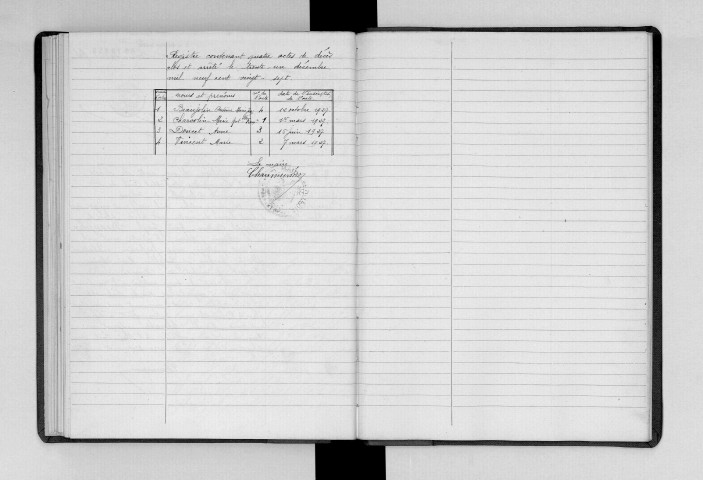 Registre contenant quatre actes de décès
clos et arrêté le trente-un décembre
mil neuf cent vingt-sept
noms et prénoms n° de l'acte date de l'inscription de l'acte
1 4 12 octobre 1927
2 Marie 1 1er mars 1927
3 Doucet Anne 3 15 juin 1927
4 Vincent Marie 2 7 mars 1927
Le maire